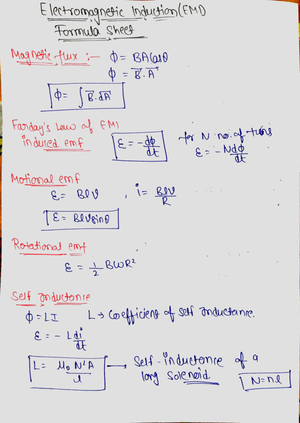 Electromagnetic Induction (EMI)
Formula Sheet
Magnetic flux :- ϕ = BA cosθ
ϕ = B⃗.A⃗
ϕ = ∫ B⃗.dA⃗
Farday's Law of EMI
induced emf
ε = -dϕ/dt
for N no. of turns
ε = -Ndϕ/dt
Motional emf
ε = Blv , i = Blv/R
ε = Blvsinθ
Rotational emf
ε = 1/2 BωR²
Self Inductance
ϕ = LI L → Coefficient of Self Inductance.
ε = - L di/dt
L = μ₀ N²A/l → Self-inductance of a
long Solenoid N = nl